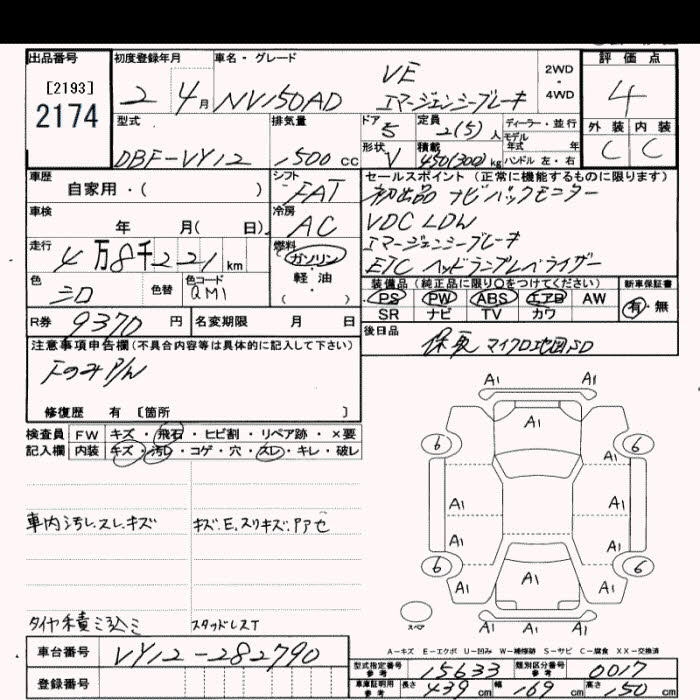 出品番号
[2193]
2174
初度登録年月
2 4月
車名・グレード
NV150AD
VE
エマージェンシーブレーキ
2WD
・
4WD
評価点
4
外装 内装
C C
型式
DBF-VY12
排気量
1500 cc
ドア
5
定員
2(5)人
形状
V
積載
450(300)kg
ディーラー・並行
モデル
年式 年
ハンドル 左・右
車歴
自家用・( )
シフト
FAT
車検
年 月( 日)
冷房
AC
走行
4万8千221km
燃料
ガソリン
軽油
( ・ )
色
シロ
色替
色コード
QM1
R券
9370円
名変期限 月 日
セールスポイント(正常に機能するものに限ります)
初出品 ナビ バックモニター
VDC LDW
エマージェンシーブレーキ
ETC ヘッドランプレベライザー
装備品(純正品に限り○をつけてください)
PS PW ABS エアB AW
SR ナビ TV カワ
新車保証書
有・無
後日品
保・取 マイクロ地図SD
注意事項申告欄(不具合内容等は具体的に記入して下さい)
FのみP/W
修復歴 有 [箇所 ]
検査員
記入欄
FW キズ・飛石・ヒビ割・リペア跡・×要
内装 キズ・汚レ・コゲ・穴・スレ・キレ・破レ
車内汚レ.スレ.キズ
キズ.E.スリキズ.アアセ
タイヤ積ミ込ミ
スタッドレスT
A1 A1
A1
6 6
A1
A1 A1
A1 A1
6 6
A1 A1 A1
A1 A1 A1
スペア
A-キズ E-エクボ U-凹み W-補修跡 S-サビ C-腐食 XX-交換済
車台番号
VY12-282790
登録番号
型式指定番号
参考
15633
類別区分番号
参考
0017
車庫証明用
参考
長さ 439cm
幅 169cm
高さ 150cm